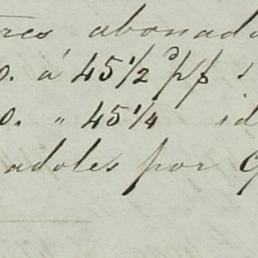 tres abonado
0. á 45 1/2 
0. " 45 1/4 id
adoles por